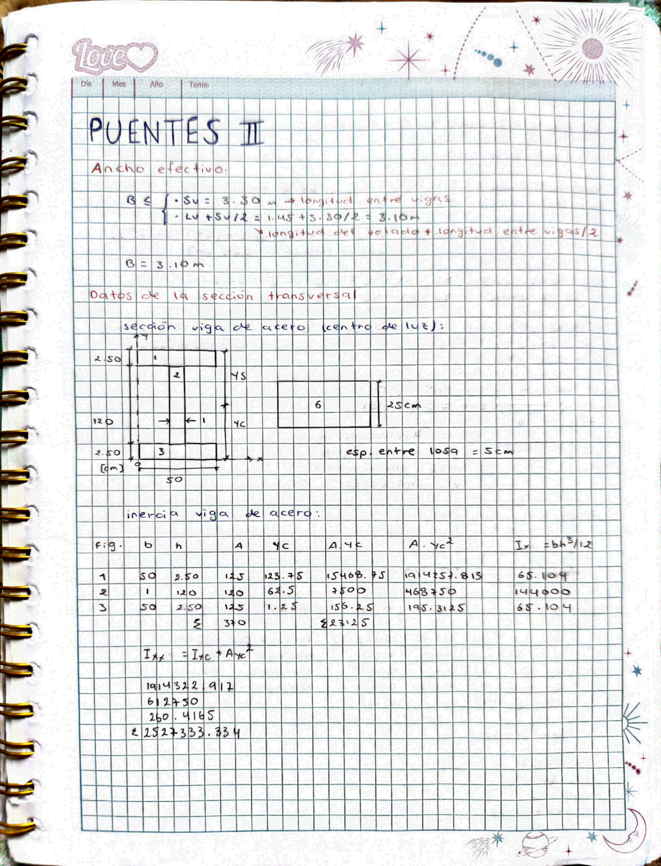 Love
Día Mes Año Tema:
PUENTES II
Ancho efectivo:
B ≤ { · Sv = 3.30 m → longitud entre vigas
· Lv + Sv/2 = 1.45 + 3.30/2 = 3.10m
↘ longitud del volado + longitud entre vigas/2
B = 3.10m
Datos de la sección transversal
sección viga de acero (centro de luz):
y
2.50 1
2 ys
6 25cm
120 → ← 1 yc
2.50 3 x esp. entre losa = 5cm
[cm] 0
50
inercia viga de acero:
Fig. b h A yc A.yc A.yc² Ix = bh³/12
1 50 2.50 125 123.75 15468.75 1914257.813 65.104
2 1 120 120 62.5 7500 468750 144000
3 50 2.50 125 1.25 156.25 195.3125 65.104
Σ 370 Σ23125
Ixx = Ixc + Ayc²
1914322.917
612750
260.4165
Σ 2527333.334